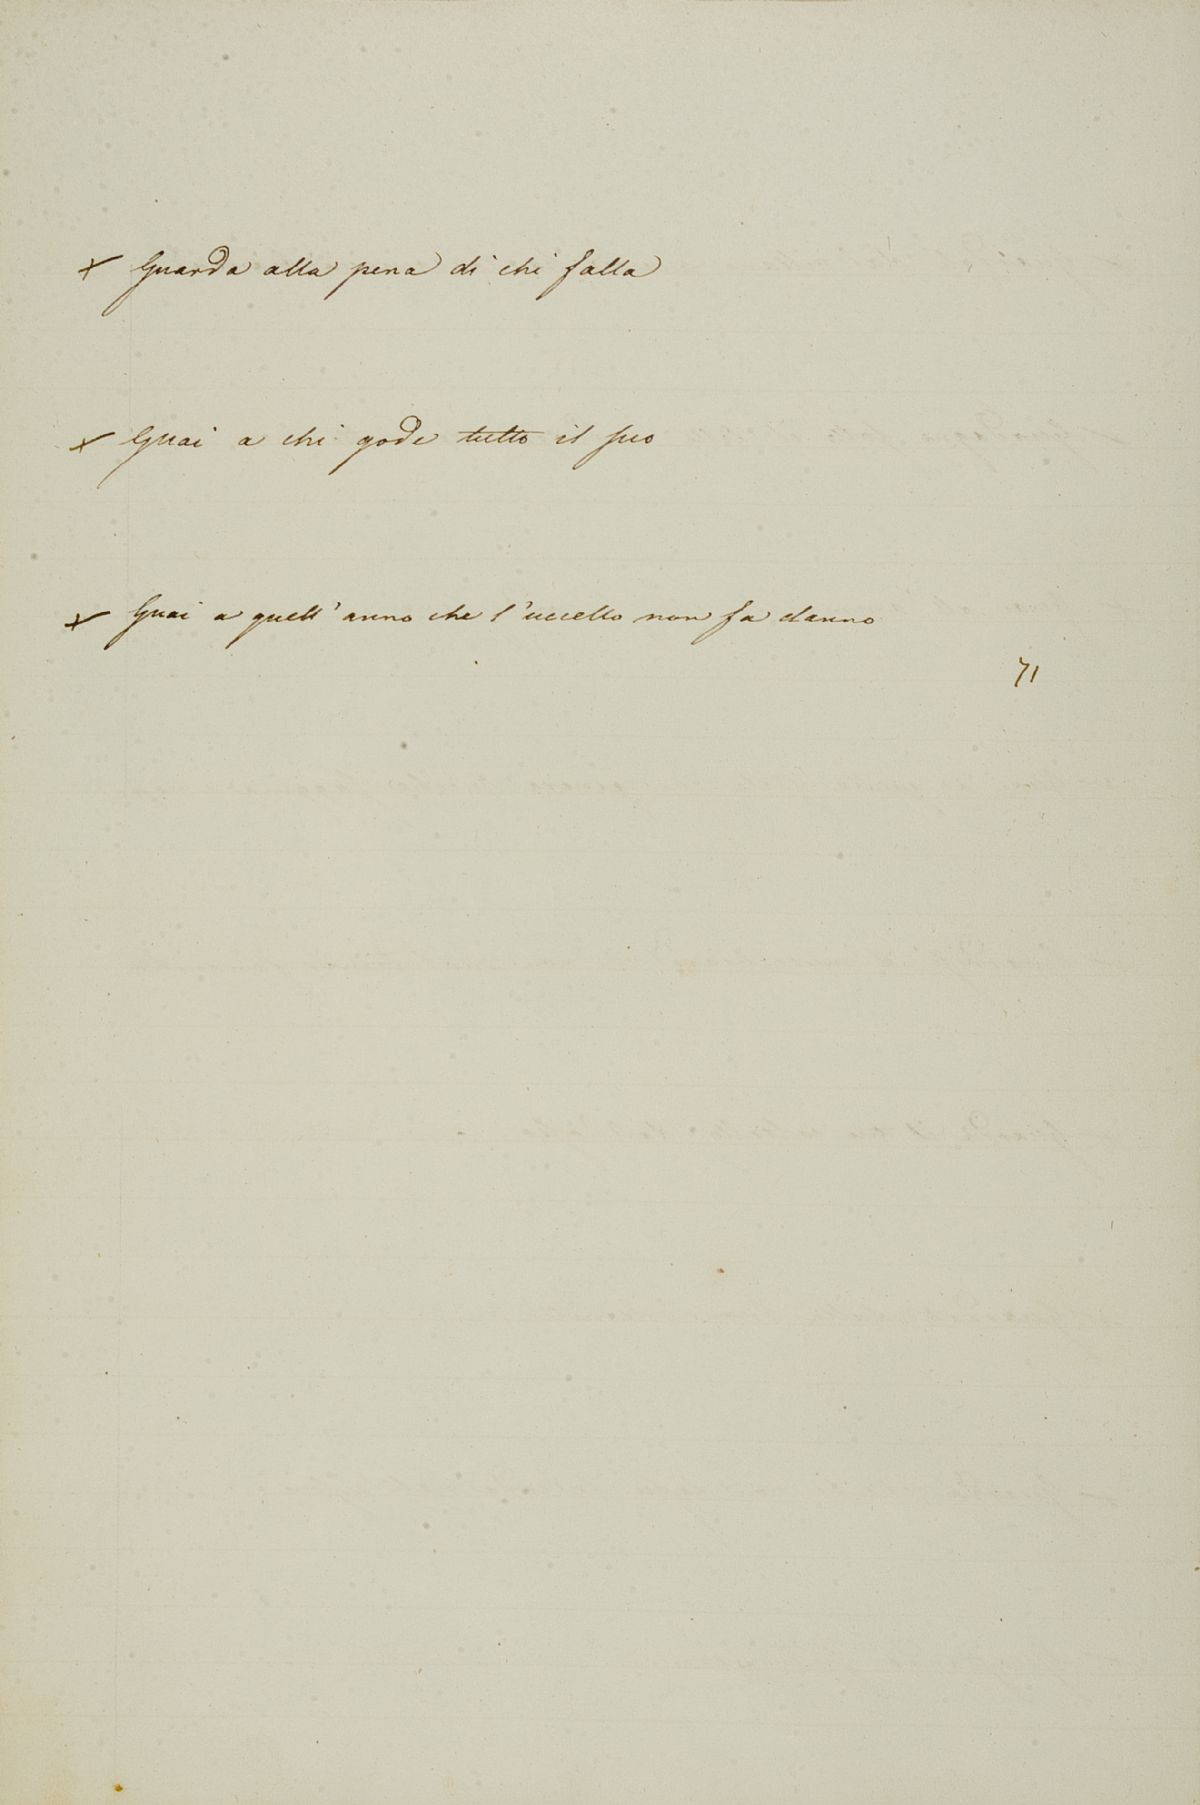 × Guarda alla pena di chi falla
× Guai a chi gode tutto il suo
× Guai a quell' anno che l'uccello non fa danno
71